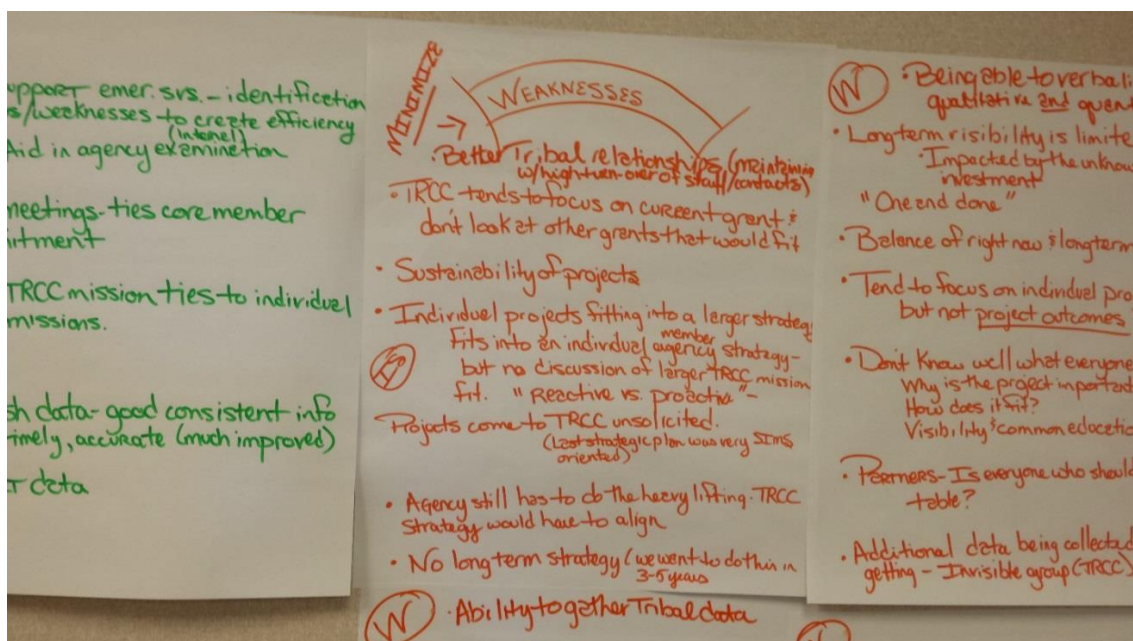 upport emer. svs. - identification
s/weeknesses to create efficiency
(internal)
Aid in agency examination
meetings - ties core member
itment
TRCC mission ties to individual
missions.
sh data - good consistent info
timely, accurate (much improved)
data
MINIMIZE
WEAKNESSES
• Better Tribal relationships (maintaining
w/high turn-over of staff/contacts)
• TRCC tends to focus on current grant &
don't look at other grants that would fit
• Sustainability of projects
• Individual projects fitting into a larger strategy
member
Fits into an individual agency strategy -
but no discussion of larger TRCC mission
fit. "Reactive vs. proactive" -
Projects come to TRCC unsolicited.
(Last strategic plan was very SIMS
oriented)
• Agency still has to do the heavy lifting. TRCC
strategy would have to align
• No long term strategy (we want to do this in
3-5 years
W
• Ability to gather Tribal data
W
• Being able to verbali
qualitative and quent
• Long term visibility is limite
• Impacted by the unknow
investment
"One and done"
• Balance of right now & longterm
• Tend to focus on individual pro
but not project outcomes
• Don't know well what everyone
Why is the project important
How does it fit?
Visibility & common educatio
• Partners - Is everyone who should
table?
• Additional data being collected
getting - Invisible group (TRCC)